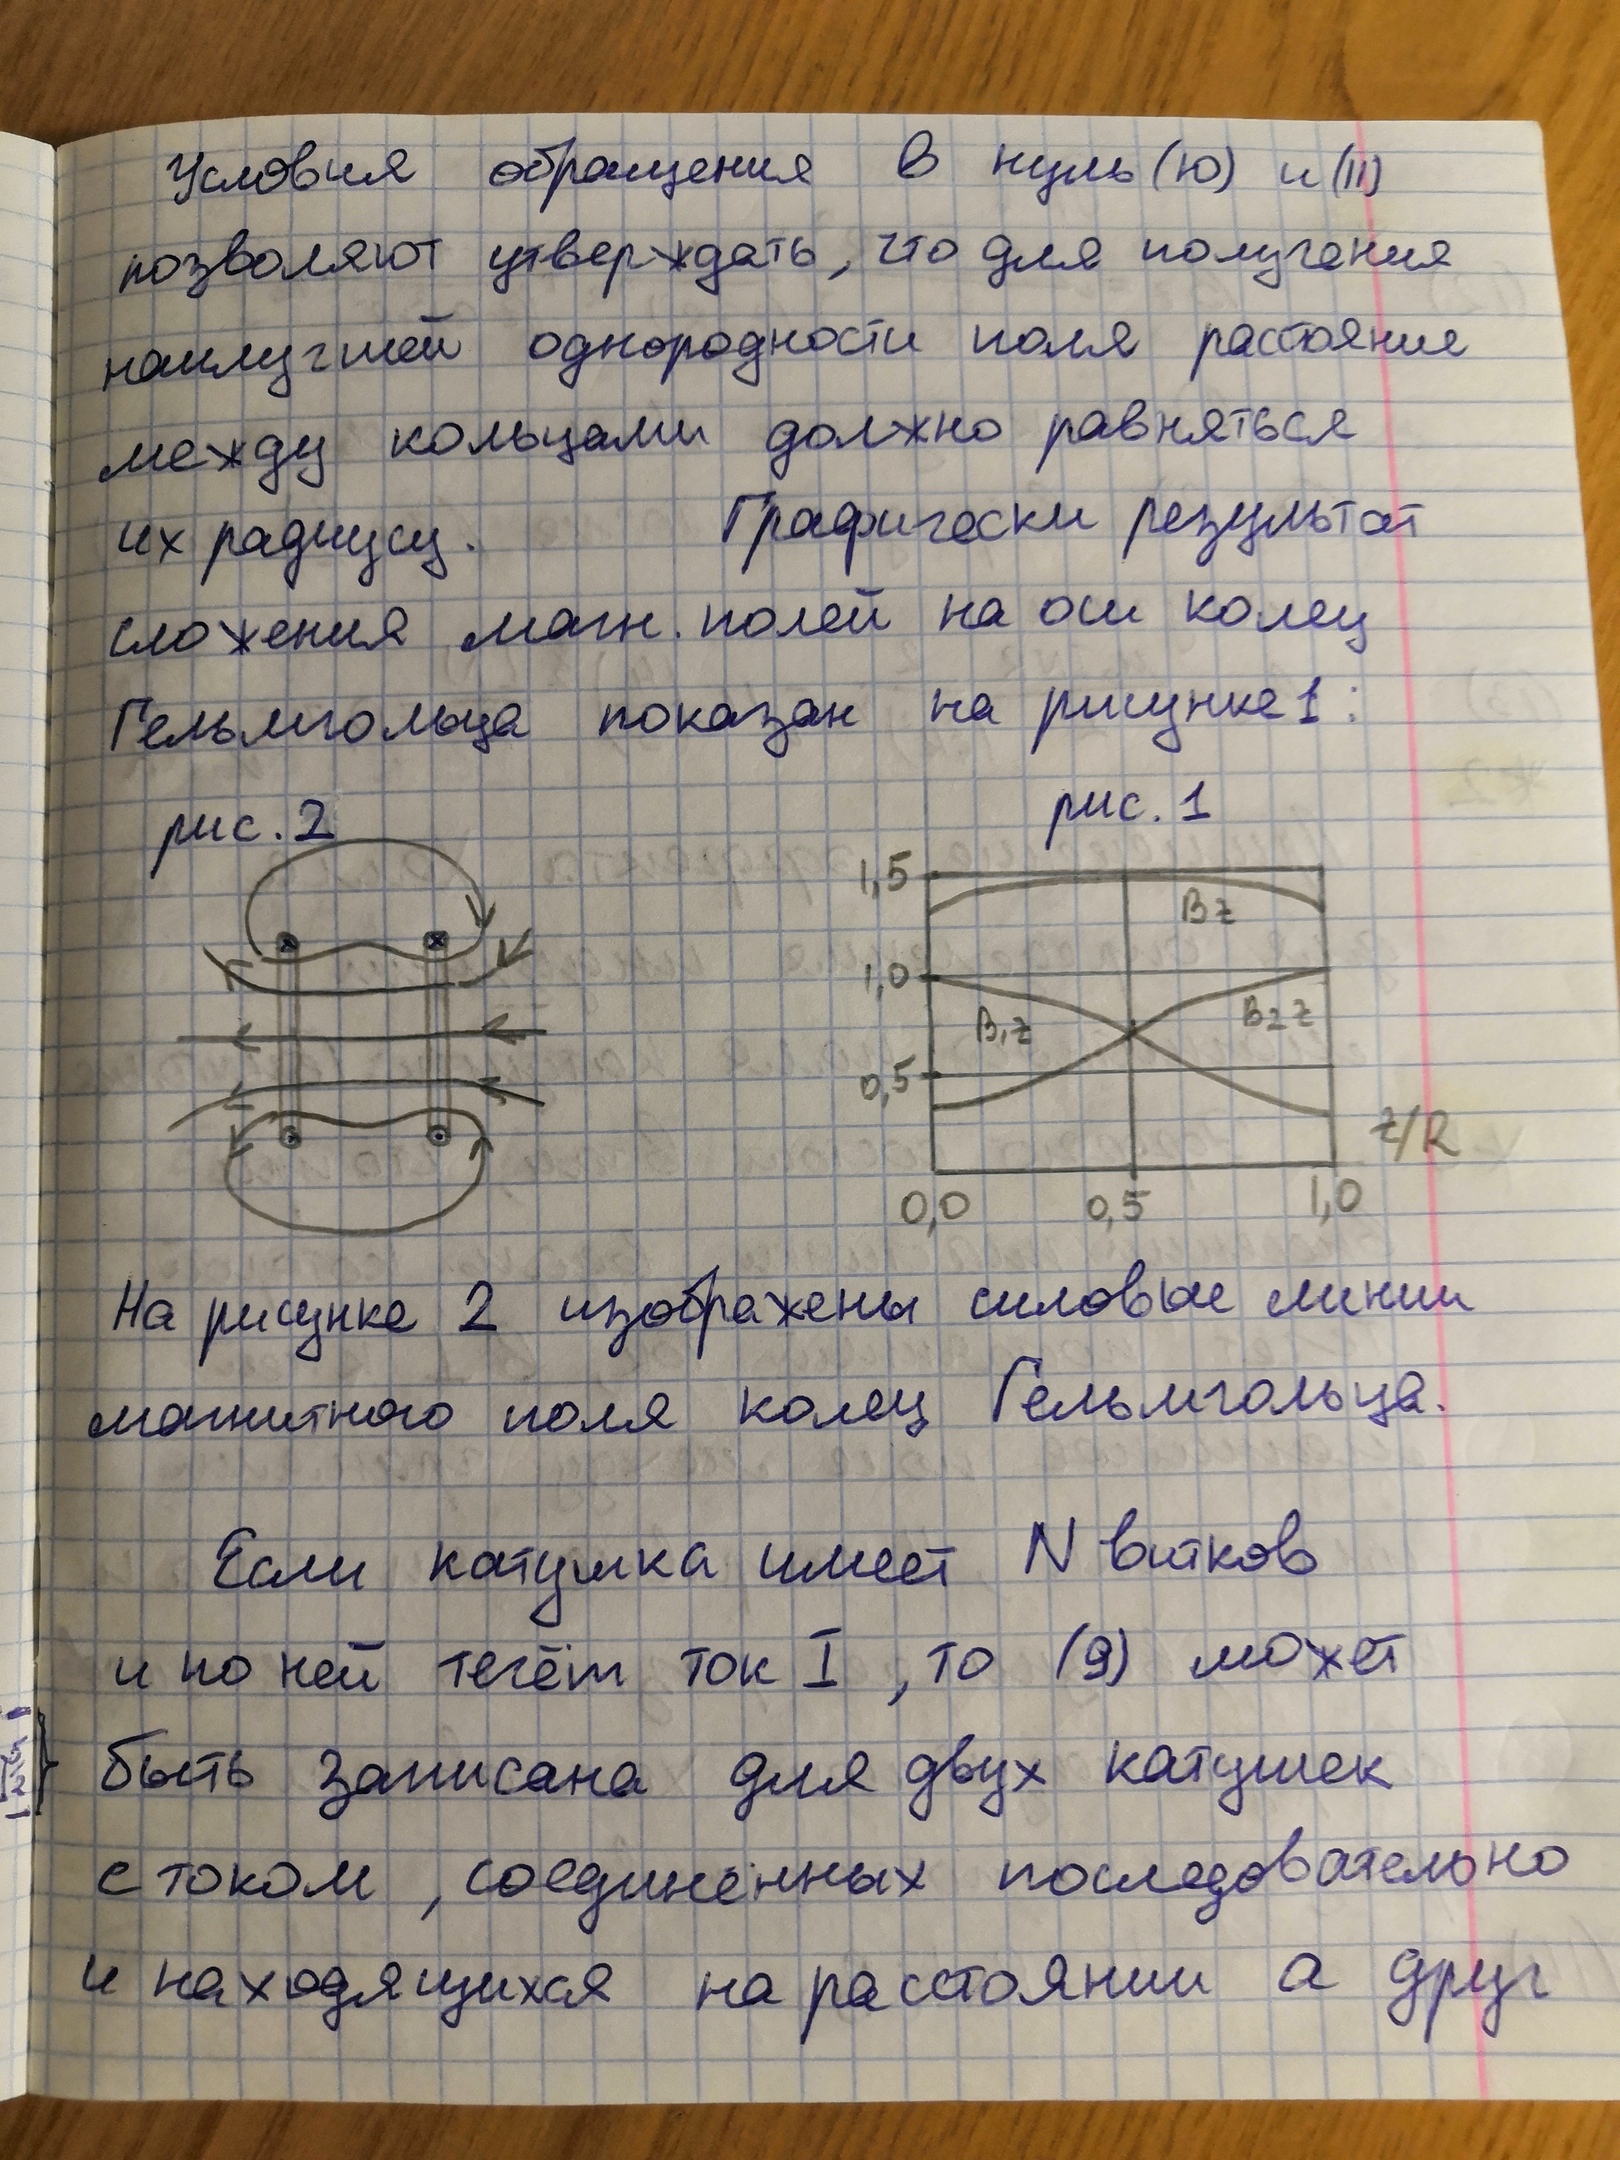 Условия обращения в нуль (10) и (11)
позволяют утверждать, что для получения
наилучшей однородности поля расстояние
между кольцами должно равняться
их радиусу. Графически результат
сложения магн. полей на оси колец
Гельмгольца показан на рисунке 1:
рис. 2
рис. 1
1,5
Bz
1,0
B1z
B2z
0,5
z/R
0,0 0,5 1,0
На рисунке 2 изображены силовые линии
магнитного поля колец Гельмгольца.
Если катушка имеет N витков
и по ней течёт ток I, то (9) может
быть записана для двух катушек
с током, соединённых последовательно
и находящихся на расстоянии a друг